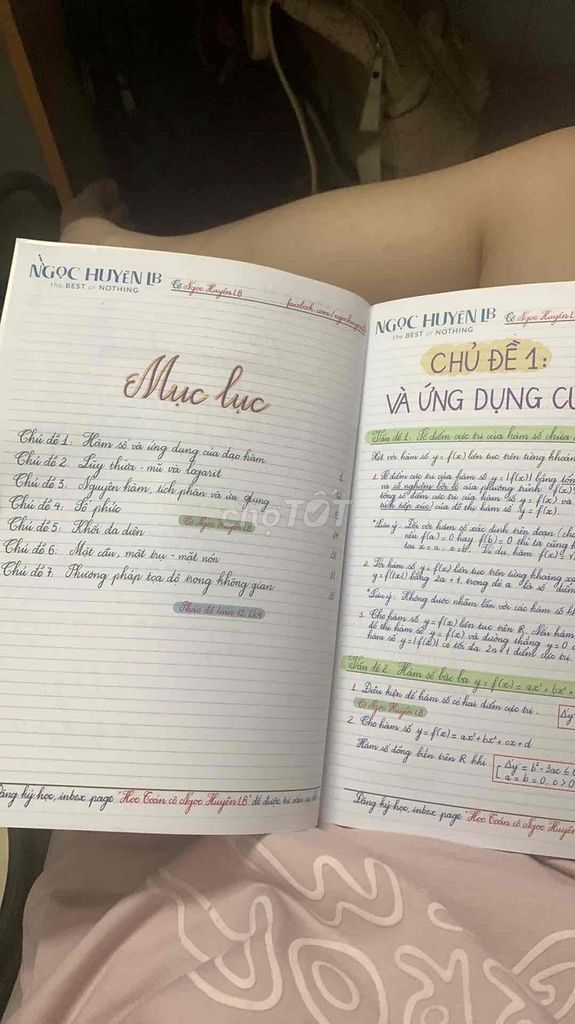 NGỌC HUYỀN LB
the BEST or NOTHING
Cô Ngọc Huyền LB
Mục lục
Chủ đề 1: Hàm số và ứng dụng của đạo hàm
Chủ đề 2: Lũy thừa - mũ và logarit
Chủ đề 3: Nguyên hàm, tích phân và ứng dụng
Chủ đề 4: Số phức
Cô Ngọc Huyền LB
Chủ đề 5: Khối đa diện
Chủ đề 6: Mặt cầu, mặt trụ - mặt nón
Chủ đề 7: Phương pháp tọa độ trong không gian
chợTỐT
Đăng ký học, inbox page "Học Toán cô Ngọc Huyền LB" để được
NGỌC HUYỀN LB
the BEST or NOTHING
Cô Ngọc Huyền
CHỦ ĐỀ 1:
VÀ ỨNG DỤNG
Vấn đề 1: Số điểm cực trị của hàm số chứa
Xét với hàm số y = f(x) liên tục trên từng khoảng
1. Số điểm cực trị của hàm số y = |f(x)| bằng tổng
và số nghiệm bội lẻ của phương trình
tổng số điểm cực trị của hàm số y = f(x) và
của đồ thị hàm số y = f(x).
*Lưu ý: Đối với hàm số xác định trên đoạn
nếu f(a) = 0 hay f(b) = 0 thì ta cũng
2. Số hàm số y = f(x) liên tục trên từng khoảng
y = f(|x|) bằng 2a + 1, trong đó a là số
*Lưu ý: Không được nhầm lẫn với các hàm số
3. Cho hàm số y = f(x) liên tục trên R. Nếu hàm
đồ thị hàm số y = f(x) và đường thẳng y = 0
hàm số y = |f(x)| có tối đa 2n+1 điểm cực trị.
Vấn đề 2: Hàm số bậc ba y = f(x) = ax³ + bx² +
1. Điều kiện để hàm số có hai điểm cực trị.
Cô Ngọc Huyền LB
2. Cho hàm số y = f(x) = ax³ + bx² + cx + d
Hàm số đồng biến trên R khi
a = b = 0, c > 0
Đăng ký học, inbox page "Học Toán cô Ngọc Huyền